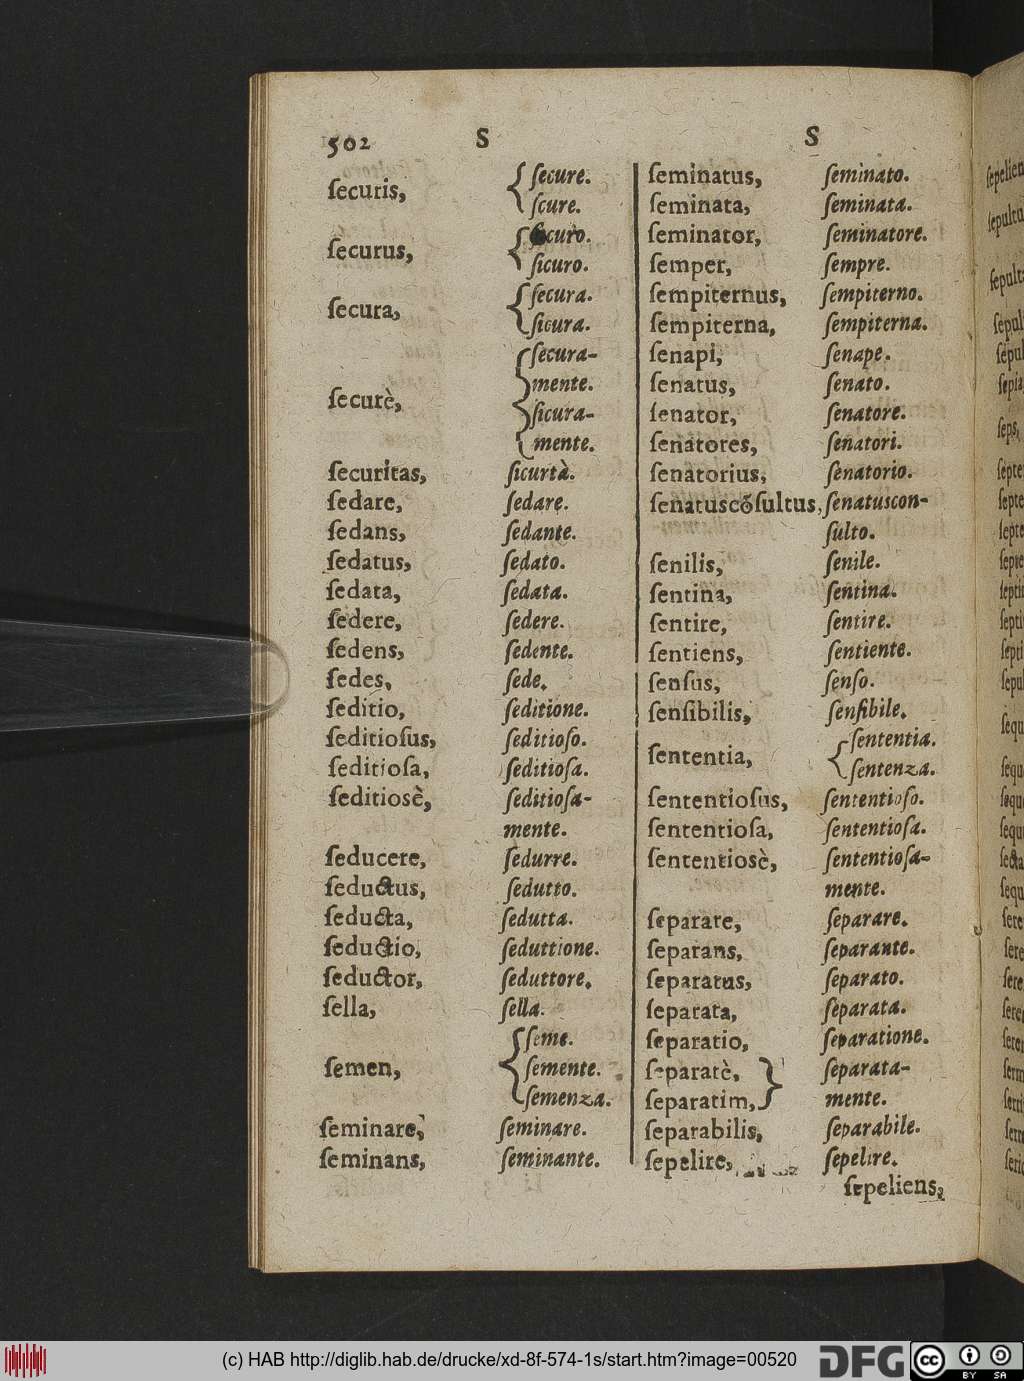 502 S S
ſecuris, ſecure.
ſcure.
ſecurus, ſecuro.
ſicuro.
ſecura, ſecura.
ſicura.
ſecurè, ſecura-
mente.
ſicura-
mente.
ſecuritas, ſicurtà.
ſedare, ſedare.
ſedans, ſedante.
ſedatus, ſedato.
ſedata, ſedata.
ſedere, ſedere.
ſedens, ſedente.
ſedes, ſede.
ſeditio, ſeditione.
ſeditioſus, ſeditioſo.
ſeditioſa, ſeditioſa.
ſeditiosè, ſeditioſa-
mente.
ſeducere, ſedurre.
ſeductus, ſedutto.
ſeducta, ſedutta.
ſeductio, ſeduttione.
ſeductor, ſeduttore.
ſella, ſella.
ſemen, ſeme.
ſemente.
ſemenza.
ſeminare, ſeminare.
ſeminans, ſeminante.
ſeminatus, ſeminato.
ſeminata, ſeminata.
ſeminator, ſeminatore.
ſemper, ſempre.
ſempiternus, ſempiterno.
ſempiterna, ſempiterna.
ſenapi, ſenape.
ſenatus, ſenato.
ſenator, ſenatore.
ſenatores, ſenatori.
ſenatorius, ſenatorio.
ſenatuscõſultus, ſenatuscon-
ſulto.
ſenilis, ſenile.
ſentina, ſentina.
ſentire, ſentire.
ſentiens, ſentiente.
ſenſus, ſenſo.
ſenſibilis, ſenſibile.
ſententia, ſententia.
ſentenza.
ſententioſus, ſententioſo.
ſententioſa, ſententioſa.
ſententiosè, ſententioſa-
mente.
ſeparare, ſeparare.
ſeparans, ſeparante.
ſeparatus, ſeparato.
ſeparata, ſeparata.
ſeparatio, ſeparatione.
ſeparatè, ſeparata-
ſeparatim, mente.
ſeparabilis, ſeparabile.
ſepelire, ſepelire.
ſepeliens,
(c) HAB http://diglib.hab.de/drucke/xd-8f-574-1s/start.htm?image=00520
DFG
cc BY SA